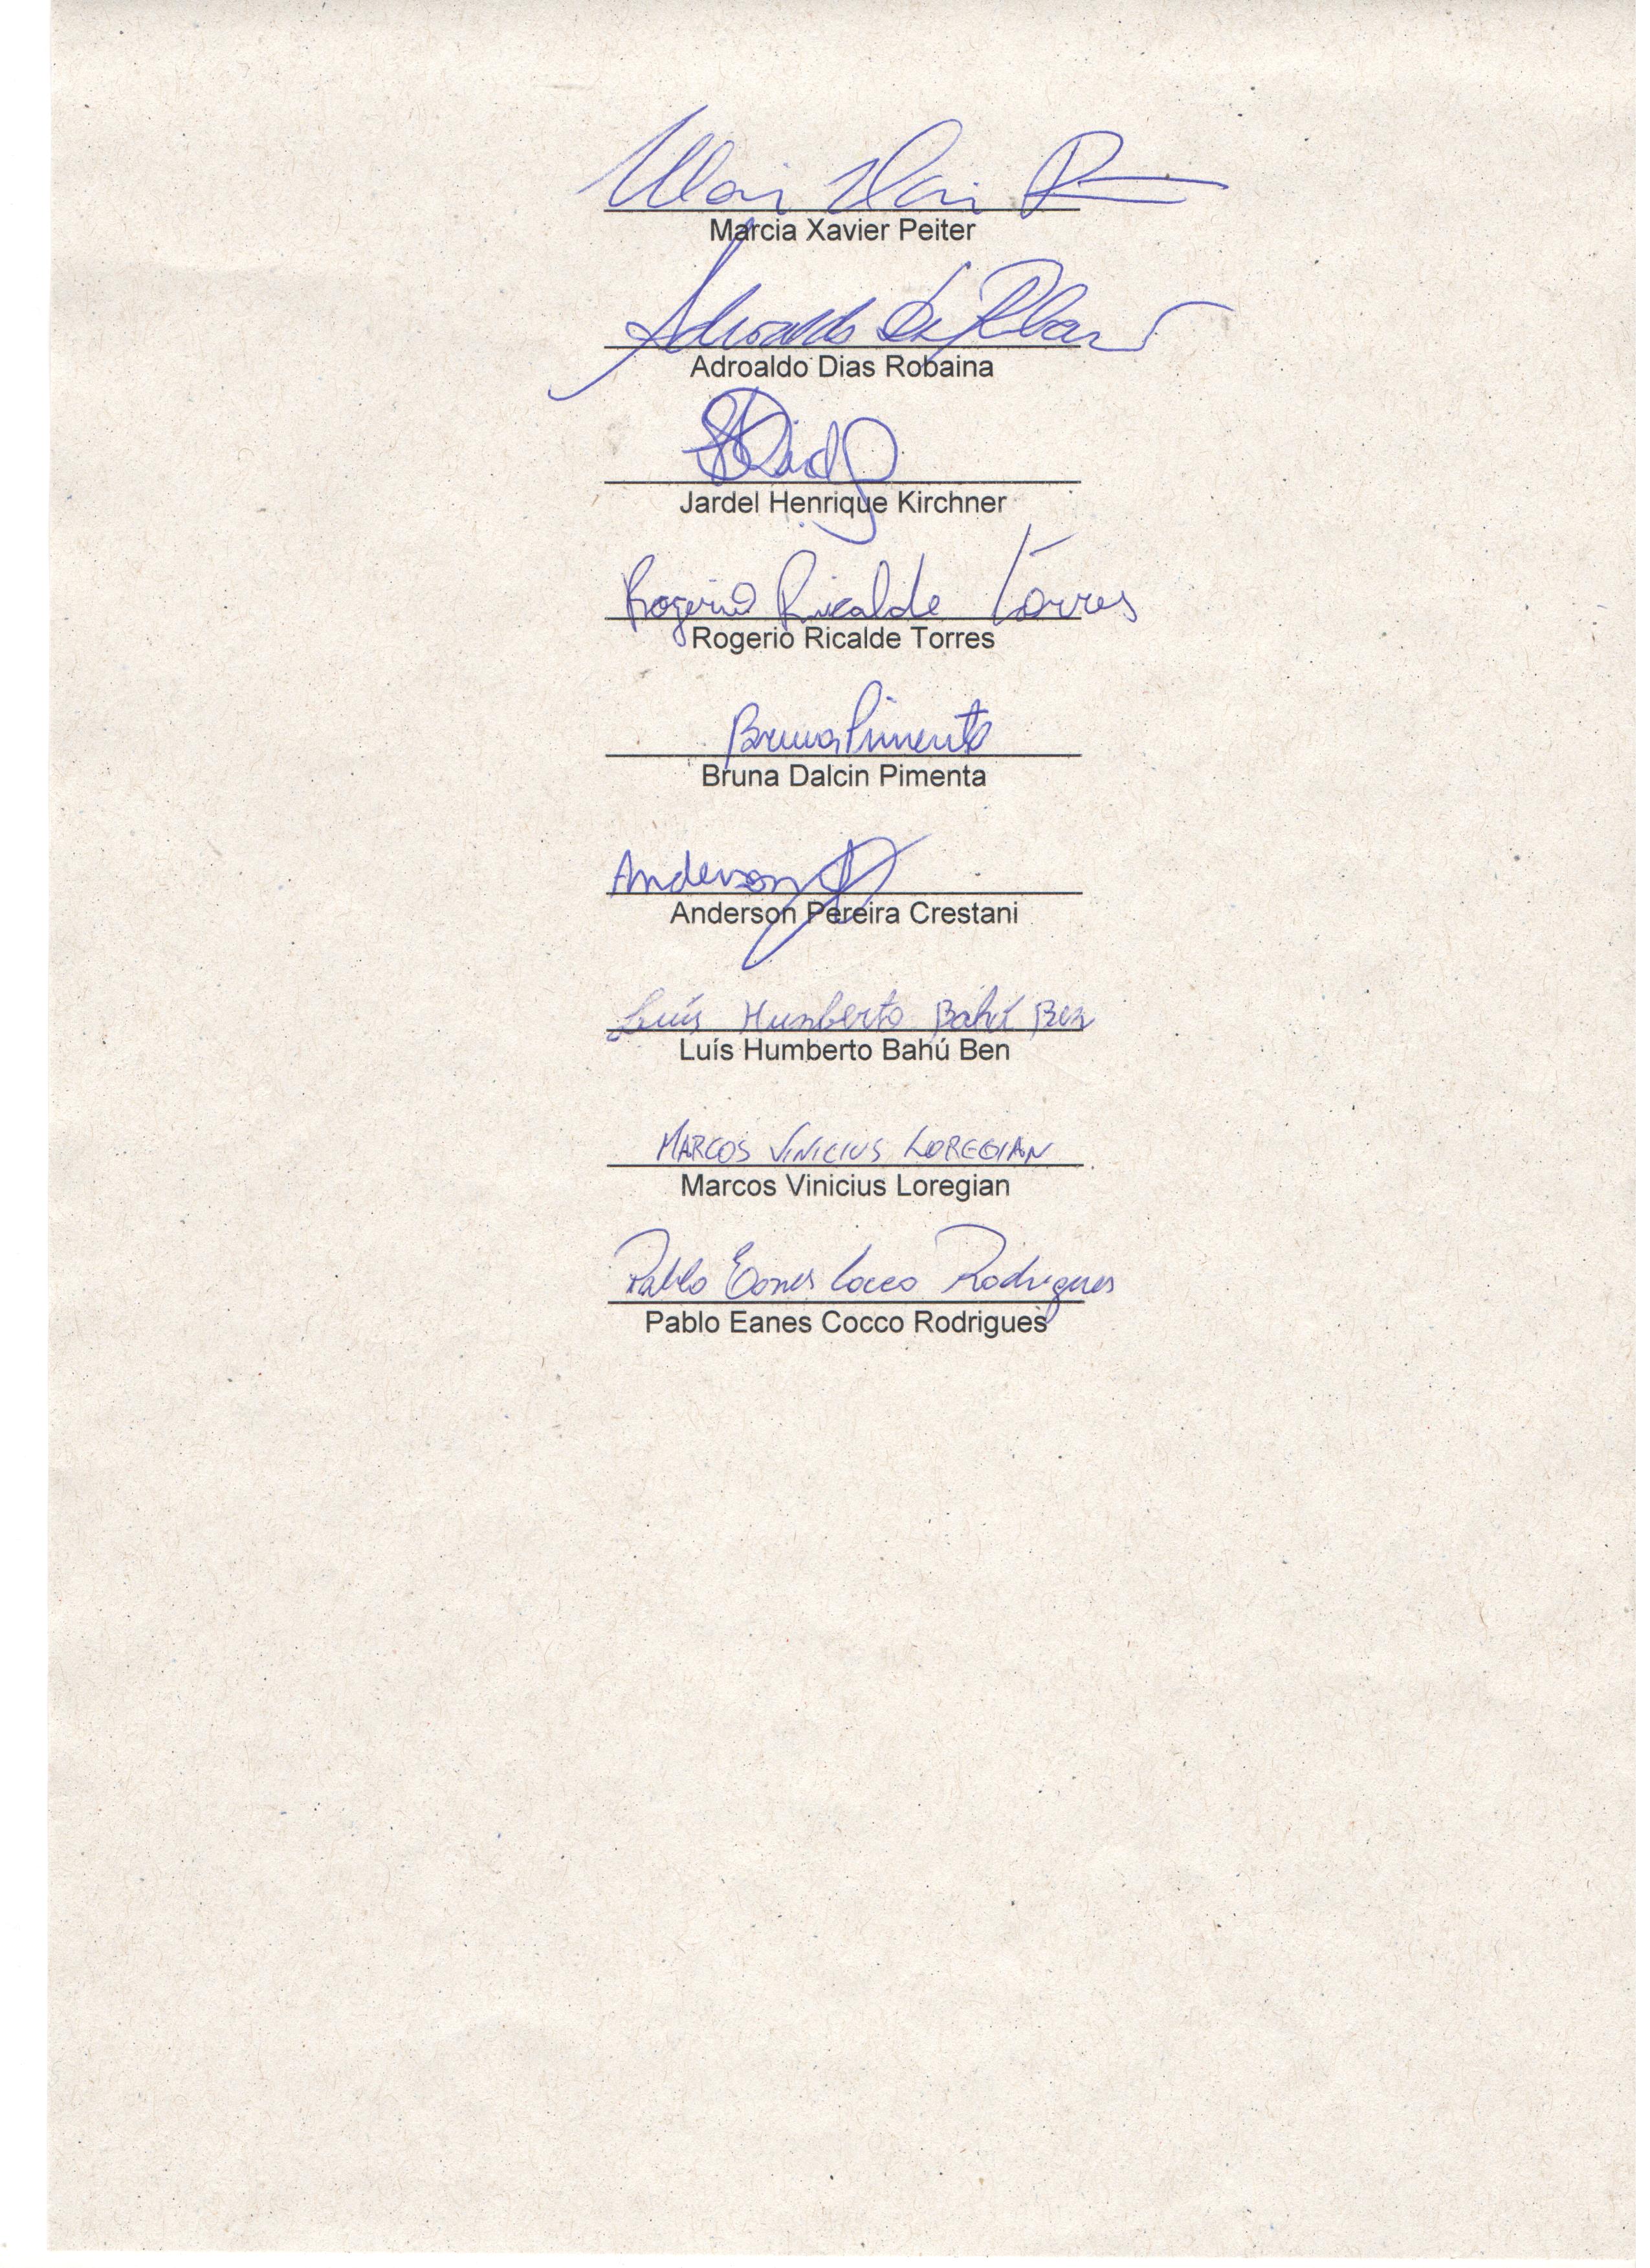 Marcia Xavier Peiter
Adroaldo
Adroaldo Dias Robaina
Jardel Henrique Kirchner
Rogerio Ricalde Torres
Rogerio Ricalde Torres
Bruna Pimenta
Bruna Dalcin Pimenta
Anderson
Anderson Pereira Crestani
Luís Humberto Bahú Ben
Luís Humberto Bahú Ben
MARCOS VINICIUS LOREGIAN
Marcos Vinicius Loregian
Pablo Eanes Cocco Rodrigues
Pablo Eanes Cocco Rodrigues